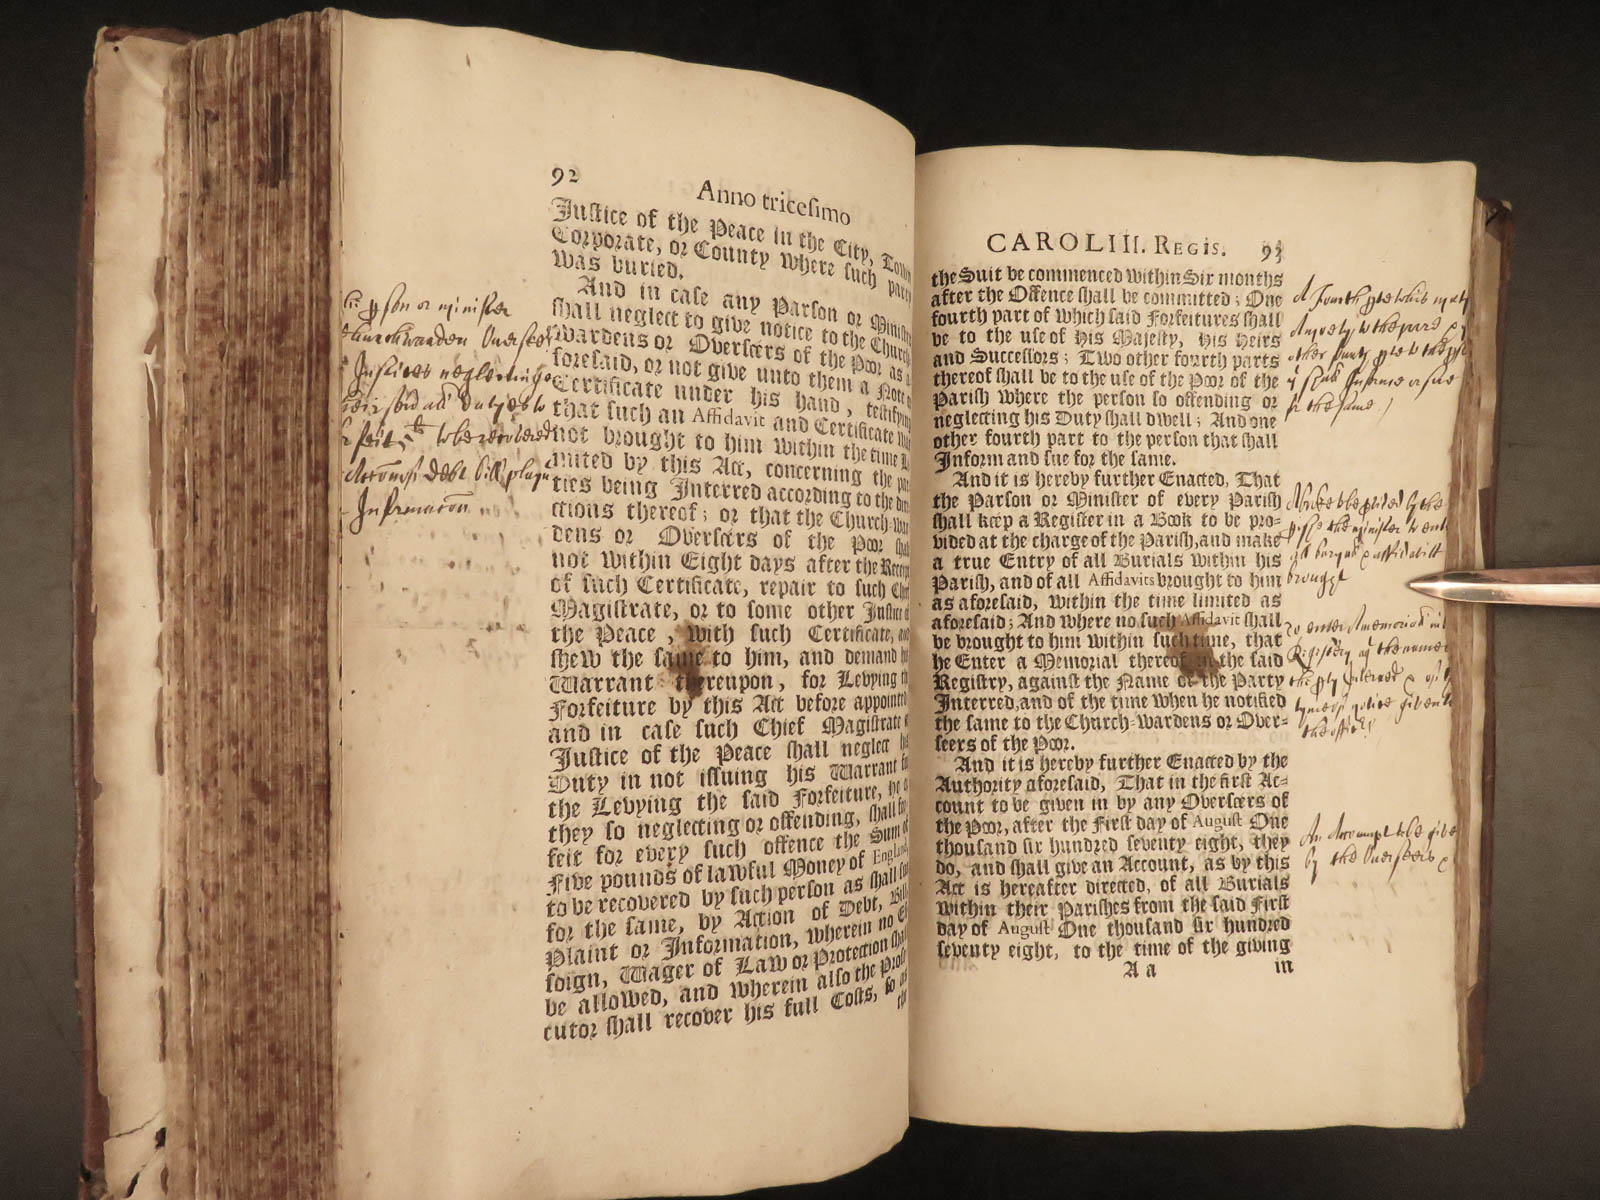 92
Anno tricesimo
Justice of the Peace in the City, Town
Corporate, or County where such party
was buried.
And in case any Parson or Minister
shall neglect to give notice to the Church
wardens or Overseers of the Poor as a
foresaid, or not give unto them a Note or
Certificate under his hand, testifying
that such an Affidavit and Certificate was
not brought to him within the time li
mited by this Act, concerning the par
ties being Interred according to the dire
ctions thereof; or that the Church-war
dens or Overseers of the Poor shall
not within Eight days after the Receipt
of such Certificate, repair to such Chief
Magistrate, or to some other Justice of
the Peace, with such Certificate, and
shew the same to him, and demand his
Warrant thereupon, for Levying the
Forfeiture by this Act before appointed
and in case such Chief Magistrate or
Justice of the Peace shall neglect his
Duty in not issuing his Warrant for
the Levying the said Forfeiture, he or
they so neglecting or offending, shall for
feit for every such offence the Sum of
Five pounds of lawful Money of England,
to be recovered by such person as shall sue
for the same, by Action of Debt, Bill,
Plaint or Information, wherein no Es
soign, Wager of Law or Protection shall
be allowed, and wherein also the Prose
cutor shall recover his full Costs, so as
the
son or minister
Churchwarden Overseer
Justices neglecting
to be recovered
debt bill
Informacon
CAROLI II. REGIS. 93
the Suit be commenced within Six months
after the Offence shall be committed; One
fourth part of which said Forfeitures shall
be to the use of His Majesty, his Heirs
and Successors; Two other fourth parts
thereof shall be to the use of the Poor of the
Parish where the person so offending or
neglecting his Duty shall dwell; And one
other fourth part to the person that shall
Inform and sue for the same.
And it is hereby further Enacted, That
the Parson or Minister of every Parish
shall keep a Register in a Book to be pro-
vided at the charge of the Parish, and make
a true Entry of all Burials within his
Parish, and of all Affidavits brought to him
as aforesaid, within the time limited as
aforesaid; And where no such Affidavit shall
be brought to him within such time, that
he Enter a Memorial thereof in the said
Registry, against the Name of the Party
Interred, and of the time when he notified
the same to the Church-wardens or Over-
seers of the Poor.
And it is hereby further Enacted by the
Authority aforesaid, That in the first Ac-
count to be given in by any Overseers of
the Poor, after the First day of August One
thousand six hundred seventy eight, they
do, and shall give an Account, as by this
Act is hereafter directed, of all Burials
within their Parishes from the said First
day of August One thousand six hundred
seventy eight, to the time of the giving
A a in
A Fourth
for the same
the minister
brought
to enter
the names
An Accompt to be give
by the Overseers